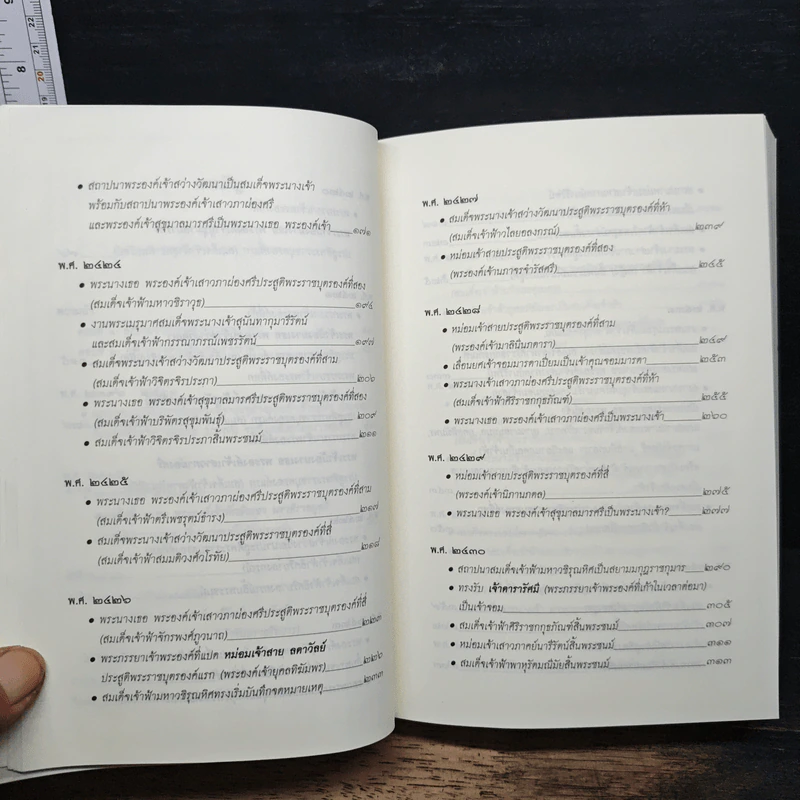 • สถาปนาพระองค์เจ้าสว่างวัฒนาเป็นสมเด็จพระนางเจ้า
พร้อมกับสถาปนาพระองค์เจ้าเสาวภาผ่องศรี
และพระองค์เจ้าสุขุมาลมารศรีเป็นพระนางเธอ พระองค์เจ้า ๑๗๑
พ.ศ. ๒๔๒๔
• พระนางเธอ พระองค์เจ้าเสาวภาผ่องศรีประสูติพระราชบุตรองค์ที่สอง
(สมเด็จเจ้าฟ้ามหาวชิราวุธ) ๑๙๔
• งานพระเมรุมาศสมเด็จพระนางเจ้าสุนันทากุมารีรัตน์
และสมเด็จเจ้าฟ้ากรรณาภรณ์เพชรรัตน์ ๑๙๗
• สมเด็จพระนางเจ้าสว่างวัฒนาประสูติพระราชบุตรองค์ที่สาม
(สมเด็จเจ้าฟ้าวิจิตรจิรประภา) ๒๐๖
• พระนางเธอ พระองค์เจ้าสุขุมาลมารศรีประสูติพระราชบุตรองค์ที่สอง
(สมเด็จเจ้าฟ้าบริพัตรสุขุมพันธุ์) ๒๐๙
• สมเด็จเจ้าฟ้าวิจิตรจิรประภาสิ้นพระชนม์ ๒๑๑
พ.ศ. ๒๔๒๕
• พระนางเธอ พระองค์เจ้าเสาวภาผ่องศรีประสูติพระราชบุตรองค์ที่สาม
(สมเด็จเจ้าฟ้าตรีเพชรุตม์ธำรง) ๒๑๗
• สมเด็จพระนางเจ้าสว่างวัฒนาประสูติพระราชบุตรองค์ที่สี่
(สมเด็จเจ้าฟ้าสมมติวงศ์วโรทัย) ๒๑๘
พ.ศ. ๒๔๒๖
• พระนางเธอ พระองค์เจ้าเสาวภาผ่องศรีประสูติพระราชบุตรองค์ที่สี่
(สมเด็จเจ้าฟ้าจักรพงศ์ภูวนาถ)
• พระภรรยาเจ้าพระองค์ที่แปด หม่อมเจ้าสาย ลดาวัลย์
ประสูติพระราชบุตรองค์แรก (พระองค์เจ้ายุคลทิฆัมพร) ๒๒๖
• สมเด็จเจ้าฟ้ามหาวชิรุณหิศทรงเริ่มบันทึกจดหมายเหตุ ๒๓๓
พ.ศ. ๒๔๒๗
• สมเด็จพระนางเจ้าสว่างวัฒนาประสูติพระราชบุตรองค์ที่ห้า
(สมเด็จเจ้าฟ้าวไลยอลงกรณ์) ๒๓๙
• หม่อมเจ้าสายประสูติพระราชบุตรองค์ที่สอง
(พระองค์เจ้านภาจรจำรัสศรี) ๒๔๕
พ.ศ. ๒๔๒๘
• หม่อมเจ้าสายประสูติพระราชบุตรองค์ที่สาม
(พระองค์เจ้ามาลินีนภดารา) ๒๔๙
• เลื่อนยศเจ้าจอมมารดาเปี่ยมเป็นเจ้าคุณจอมมารดา ๒๕๓
• พระนางเจ้าเสาวภาผ่องศรีประสูติพระราชบุตรองค์ที่ห้า
(สมเด็จเจ้าฟ้าศิริราชกกุธภัณฑ์) ๒๕๕
• พระนางเธอ พระองค์เจ้าเสาวภาผ่องศรีเป็นพระนางเจ้า ๒๖๐
พ.ศ. ๒๔๒๙
• หม่อมเจ้าสายประสูติพระราชบุตรองค์ที่สี่
(พระองค์เจ้านิภานภดล) ๒๗๕
• พระนางเธอ พระองค์เจ้าสุขุมาลมารศรีเป็นพระนางเจ้า? ๒๗๗
พ.ศ. ๒๔๓๐
• สถาปนาสมเด็จเจ้าฟ้ามหาวชิรุณหิศเป็นสยามมกุฎราชกุมาร ๒๙๐
• ทรงรับ เจ้าดารารัศมี (พระภรรยาเจ้าพระองค์ที่เก้าในเวลาต่อมา)
เป็นเจ้าจอม ๓๐๕
• สมเด็จเจ้าฟ้าศิริราชกกุธภัณฑ์สิ้นพระชนม์ ๓๐๗
• หม่อมเจ้าเสาวภาคย์นารีรัตน์สิ้นพระชนม์ ๓๑๑
• สมเด็จเจ้าฟ้าพาหุรัดมณีมัยสิ้นพระชนม์ ๓๑๓